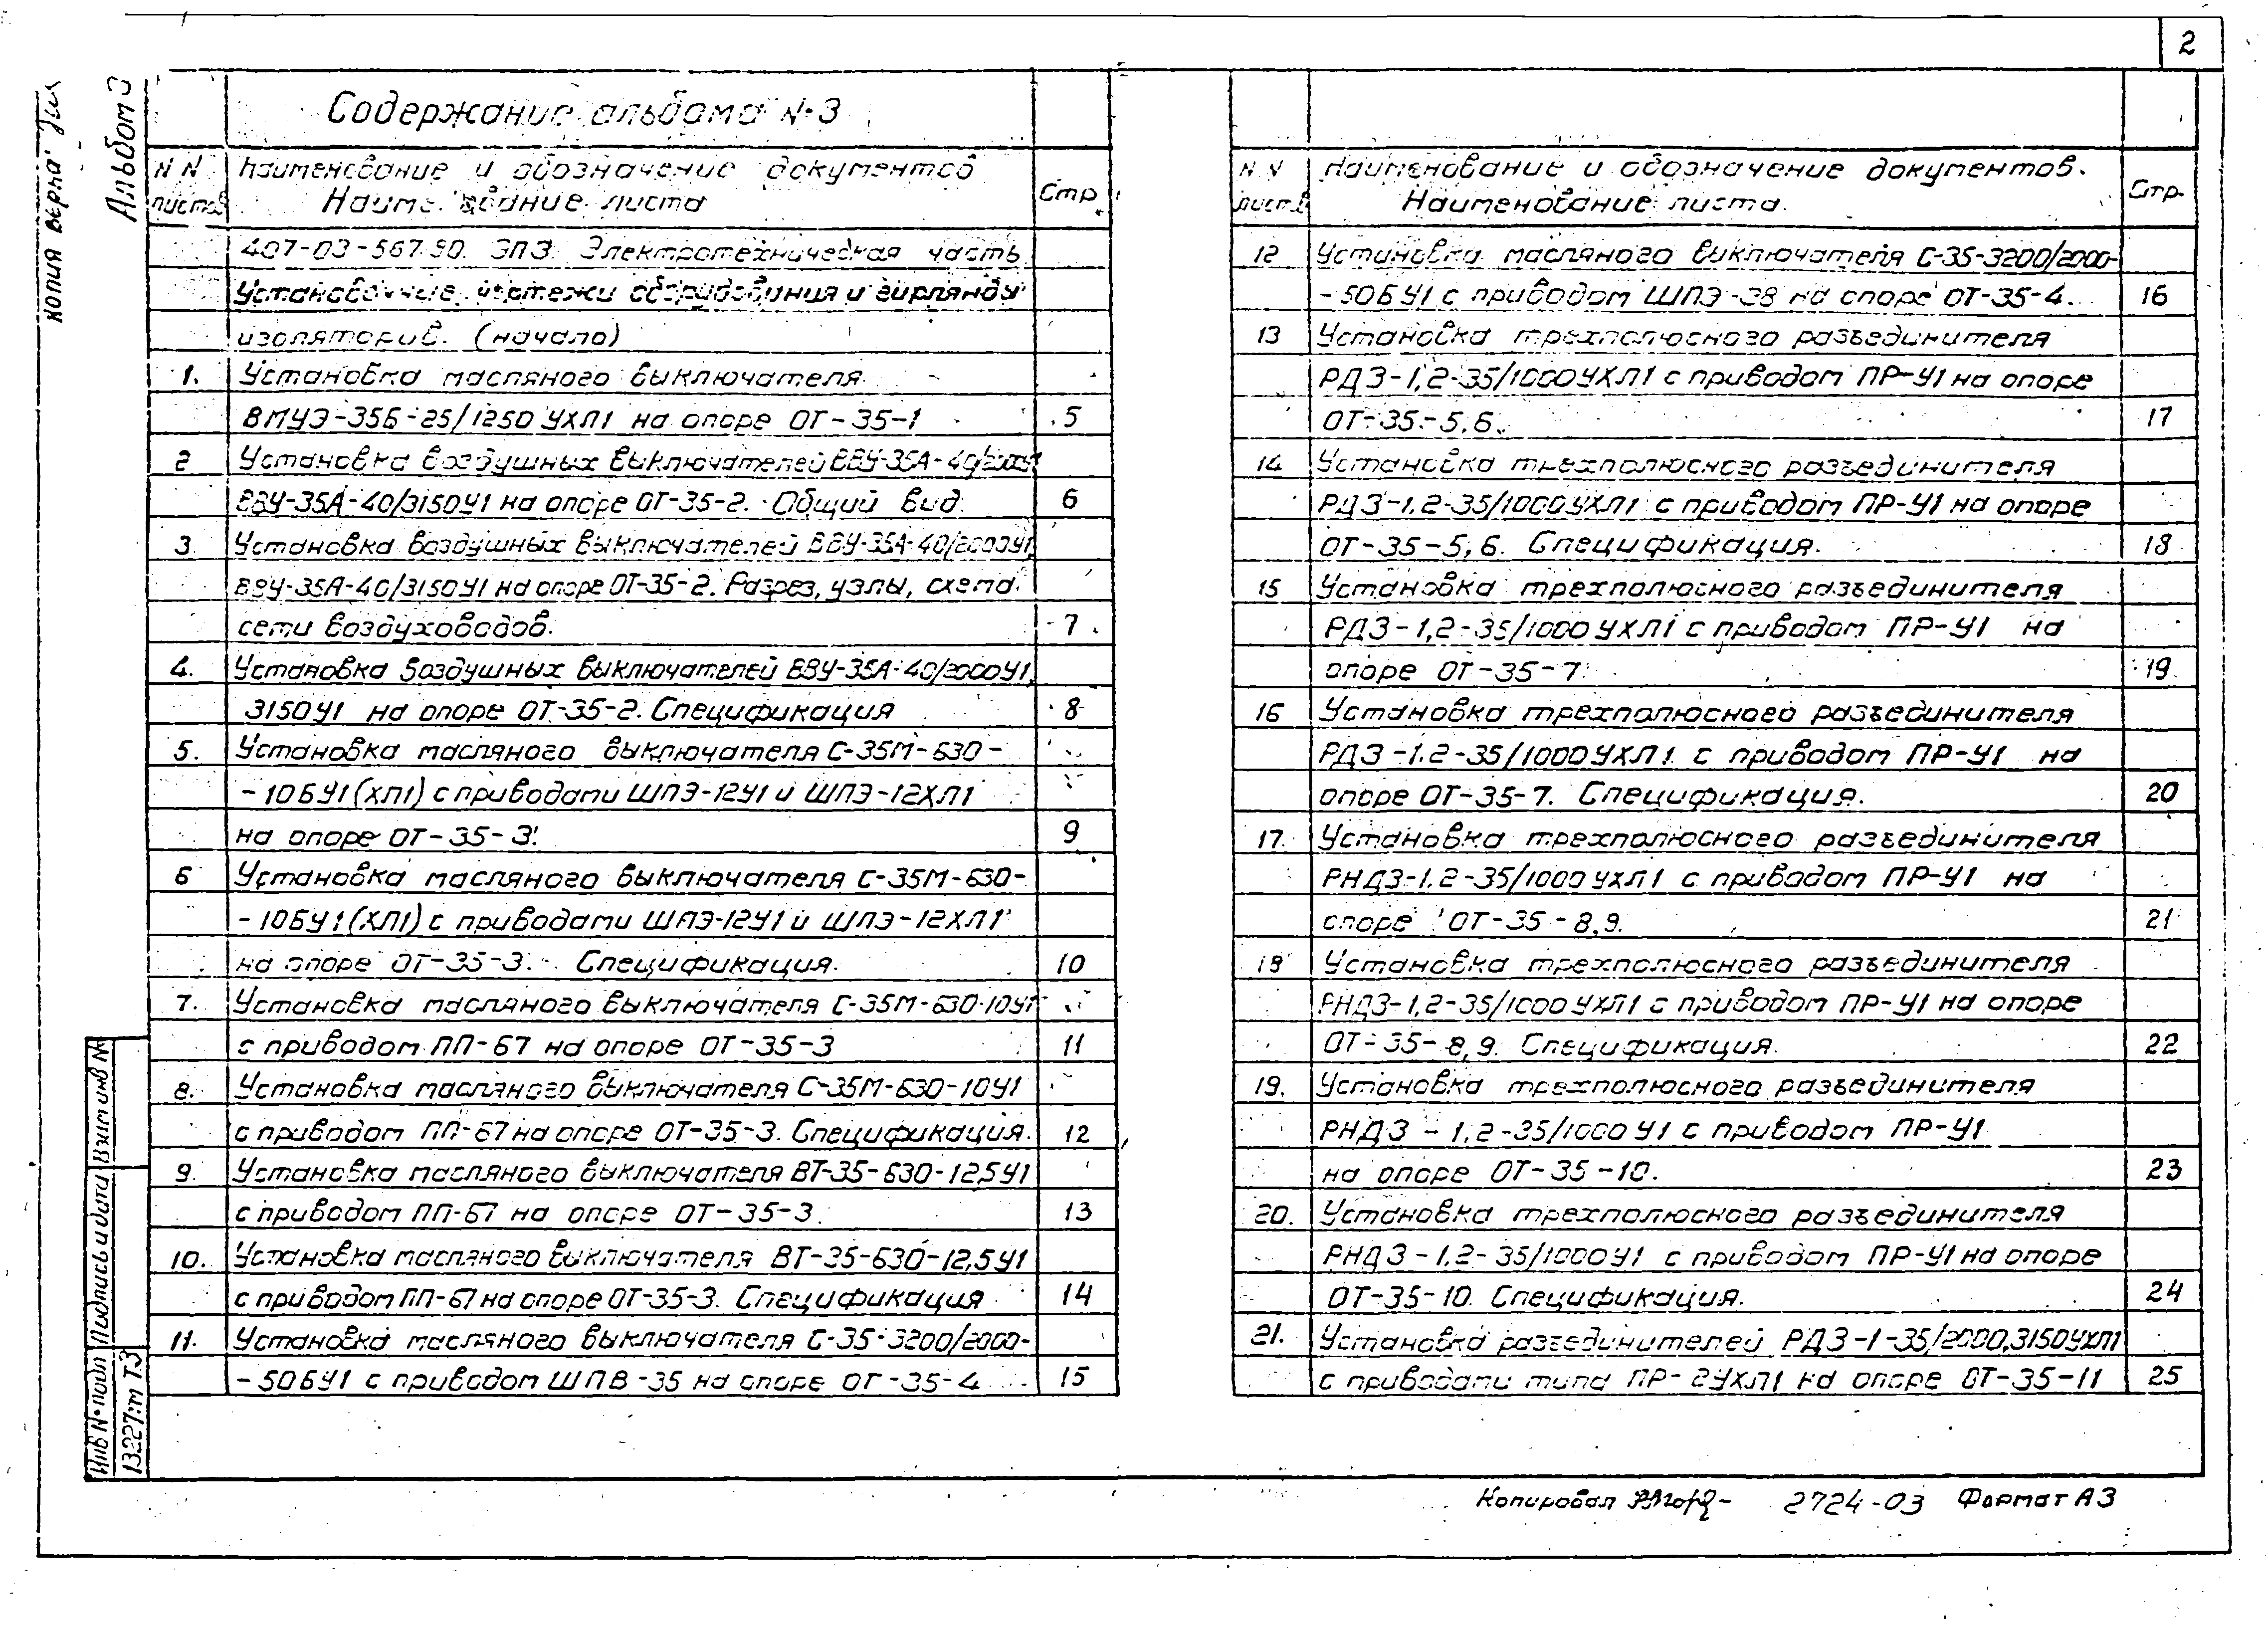 2
Копия верна
Альбом 3
Содержание альбома №3
NN листов
Наименование и обозначение документов
Наименование листа
Стр
407-03-567.90. ЭП3. Электротехническая часть
Установочные чертежи оборудования и гирлянды
изоляторов. (начало)
1. Установка масляного выключателя
ВМУЭ-35Б-25/1250 УХЛ1 на опоре ОТ-35-1 5
2 Установка воздушных выключателей ВВУ-35А-40/2000У1
ВВУ-35А-40/3150У1 на опоре ОТ-35-2. Общий вид 6
3 Установка воздушных выключателей ВВУ-35А-40/2000У1,
ВВУ-35А-40/3150У1 на опоре ОТ-35-2. Разрез, узлы, схема
сети воздуховодов. 7
4. Установка воздушных выключателей ВВУ-35А-40/2000У1,
3150У1 на опоре ОТ-35-2. Спецификация 8
5. Установка масляного выключателя С-35М-630-
-10БУ1(ХЛ1) с приводами ШПЭ-12У1 и ШПЭ-12ХЛ1
на опоре ОТ-35-3. 9
6 Установка масляного выключателя С-35М-630-
-10БУ1(ХЛ1) с приводами ШПЭ-12У1 и ШПЭ-12ХЛ1
на опоре ОТ-35-3. Спецификация. 10
7. Установка масляного выключателя С-35М-630-10У1
с приводом ПП-67 на опоре ОТ-35-3 11
8. Установка масляного выключателя С-35М-630-10У1
с приводом ПП-67 на опоре ОТ-35-3. Спецификация. 12
9. Установка масляного выключателя ВТ-35-630-12,5У1
с приводом ПП-67 на опоре ОТ-35-3. 13
10. Установка масляного выключателя ВТ-35-630-12,5У1
с приводом ПП-67 на опоре ОТ-35-3. Спецификация 14
11. Установка масляного выключателя С-35-3200/2000-
-50БУ1 с приводом ШПВ-35 на опоре ОТ-35-4 15
NN листов
Наименование и обозначение документов.
Наименование листа.
Стр.
12 Установка масляного выключателя С-35-3200/2000-
-50БУ1 с приводом ШПЭ-38 на опоре ОТ-35-4. 16
13 Установка трехполюсного разъединителя
РДЗ-1,2-35/1000УХЛ1 с приводом ПР-У1 на опоре
ОТ-35-5,6. 17
14 Установка трехполюсного разъединителя
РДЗ-1,2-35/1000УХЛ1 с приводом ПР-У1 на опоре
ОТ-35-5,6. Спецификация. 18
15 Установка трехполюсного разъединителя
РДЗ-1,2-35/1000УХЛ1 с приводом ПР-У1 на
опоре ОТ-35-7. 19
16 Установка трехполюсного разъединителя
РДЗ-1.2-35/1000УХЛ1 с приводом ПР-У1 на
опоре ОТ-35-7. Спецификация. 20
17. Установка трехполюсного разъединителя
РНДЗ-1.2-35/1000УХЛ1 с приводом ПР-У1 на
опоре ОТ-35-8,9. 21
18 Установка трехполюсного разъединителя
РНДЗ-1,2-35/1000УХЛ1 с приводом ПР-У1 на опоре
ОТ-35-8,9. Спецификация. 22
19. Установка трехполюсного разъединителя
РНДЗ-1,2-35/1000У1 с приводом ПР-У1
на опоре ОТ-35-10. 23
20. Установка трехполюсного разъединителя
РНДЗ-1.2-35/1000У1 с приводом ПР-У1 на опоре
ОТ-35-10. Спецификация. 24
21. Установка разъединителей РДЗ-1-35/2000,3150УХЛ1
с приводами типа ПР-2УХЛ1 на опоре ОТ-35-11 25
Взам инв №
Подпись и дата
Инв №подл
13227тм Т3
Копировал
2724-03
Формат А3